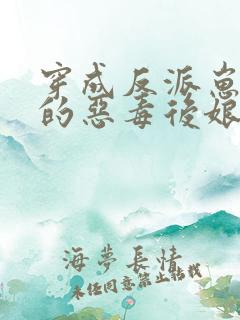 穿成反派崽
的惡毒後娘
海夢長情
未經同意禁止轉載